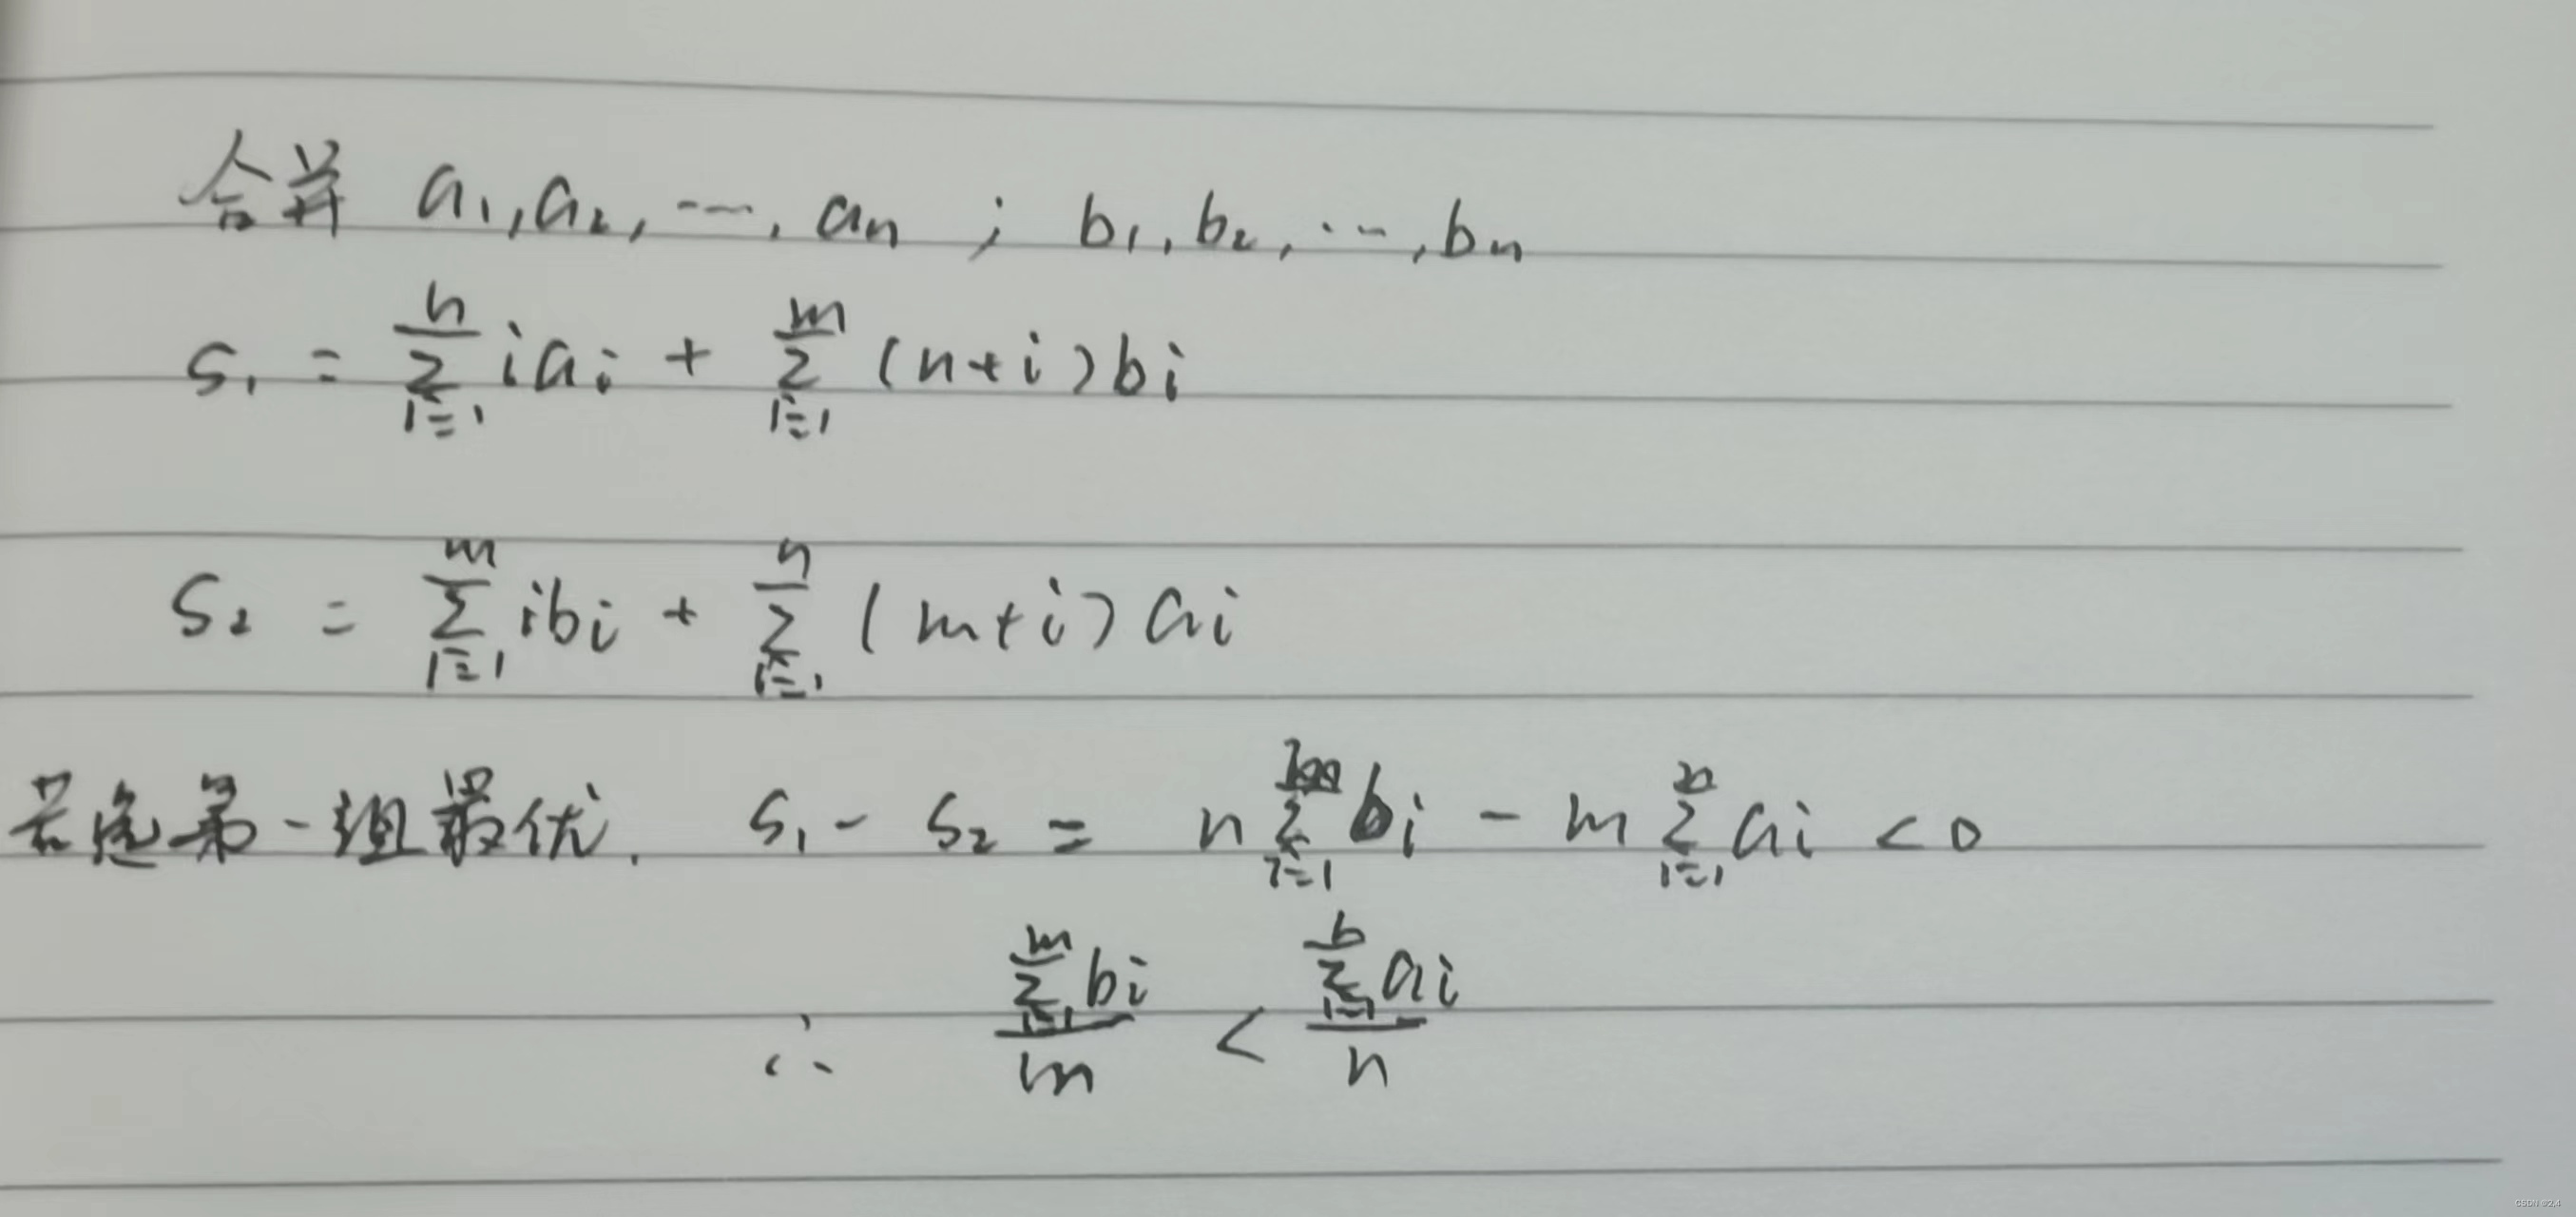 合并 a₁,a₂,…,aₙ ; b₁,b₂,…,bₙ
S₁ = ∑ⁿᵢ₌₁ iaᵢ + ∑ᵐᵢ₌₁ (n+i)bᵢ
S₂ = ∑ᵐᵢ₌₁ ibᵢ + ∑ⁿᵢ₌₁ (m+i)aᵢ
若选第一组最优. S₁ - S₂ = n∑ᵐᵢ₌₁ bᵢ - m∑ⁿᵢ₌₁ aᵢ < 0
∴ (∑ᵐᵢ₌₁ bᵢ)/m < (∑ⁿᵢ₌₁ aᵢ)/n
CSDN @2.4